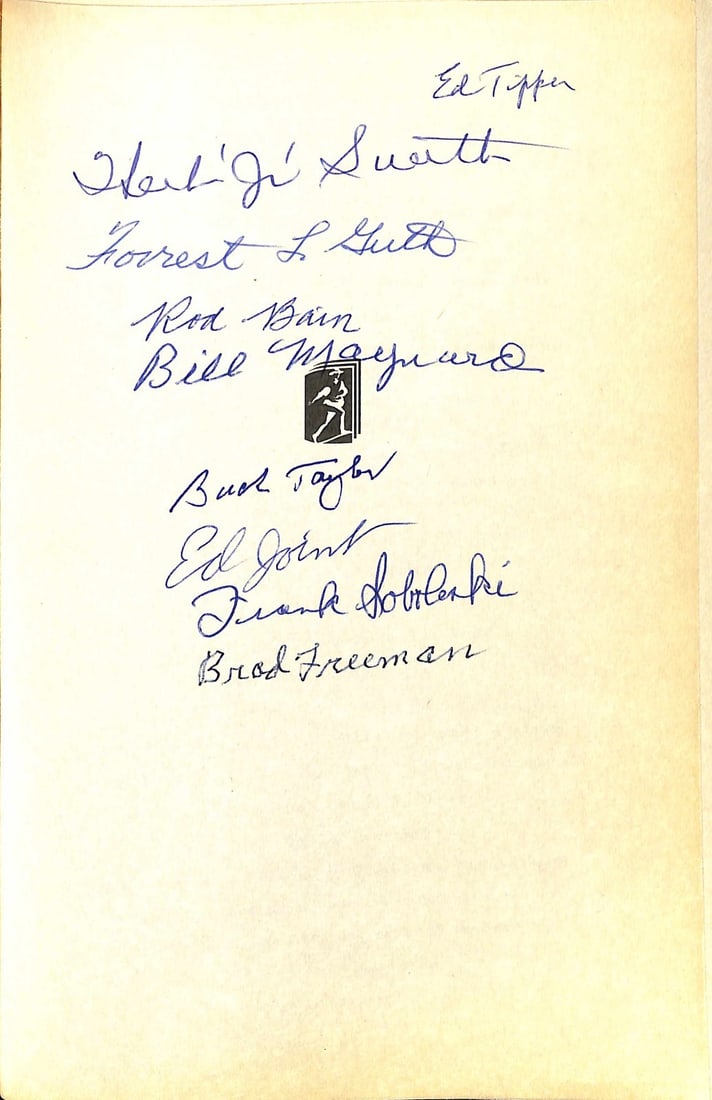 Ed Tipper
Herb "Jr" Suerth
Forrest L. Guth
Rod Bain
Bill Maynard
Buck Taylor
Ed Joint
Frank Soboleski
Brad Freeman